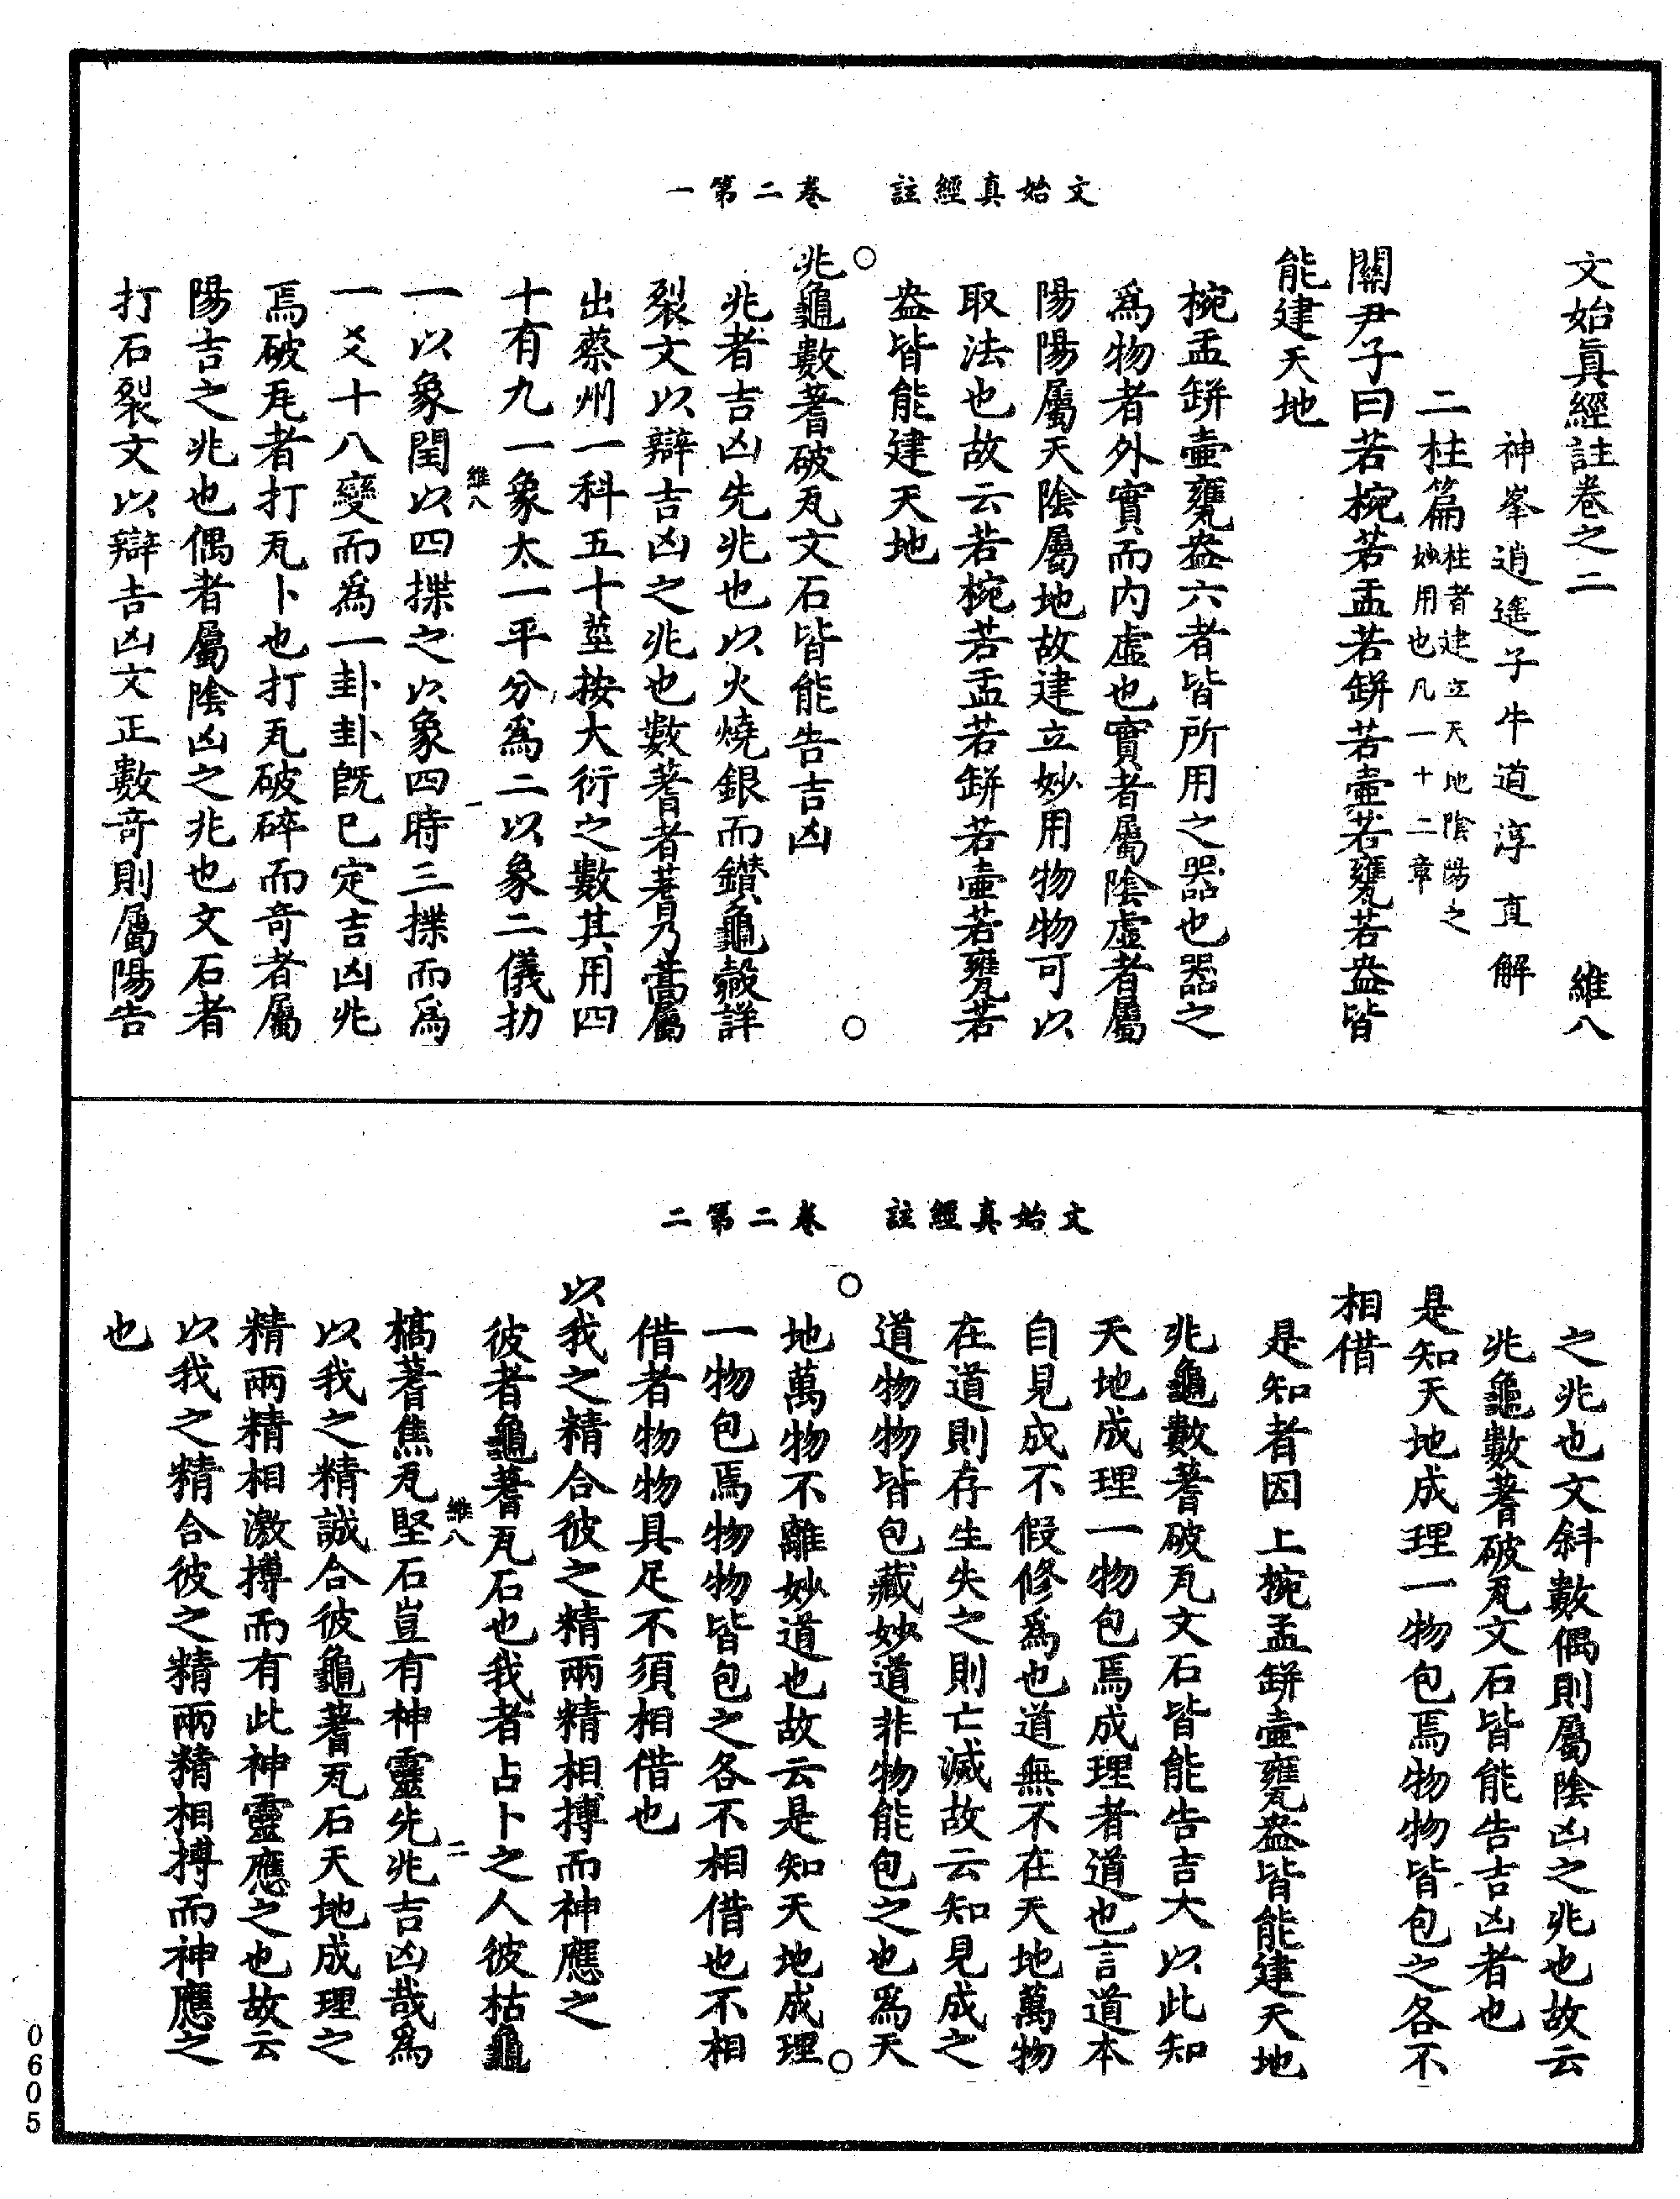 文始真經註　卷二第一
文始眞經註卷之二　維八
神峯逍遙子牛道淳直解
二柱篇柱者建立天地陰陽之妙用也凡一十二章
關尹子曰若椀若盂若缾若壺若甕若盎皆
能建天地
椀盂缾壺甕盎六者皆所用之器也器之
爲物者外實而內虛也實者屬陰虛者屬
陽陽屬天陰屬地故建立妙用物物可以
取法也故云若椀若盂若缾若壺若甕若
盎皆能建天地
兆龜數蓍破瓦文石皆能告吉凶
兆者吉凶先兆也以火燒銀而鑚龜殻詳
裂文以辯吉凶之兆也數蓍者蓍乃蒿屬
出蔡州一科五十莖按大衍之數其用四
十有九一象太一平分爲二以象二儀扐
維八
一以象閏以四揲之以象四時三揲而爲
一
一爻十八變而爲一卦卦旣已定吉凶兆
焉破瓦者打瓦卜也打瓦破碎而奇者屬
陽吉之兆也偶者屬陰凶之兆也文石者
打石裂文以辯吉凶文正數竒則屬陽告
文始真經註　卷二第二
之兆也文斜數偶則屬陰凶之兆也故云
兆龜數蓍破瓦文石皆能告吉凶者也
是知天地成理一物包焉物物皆包之各不
相借
是知者因上椀盂缾壺甕盎皆能建天地
兆龜數蓍破瓦文石皆能告吉大以此知
天地成理一物包焉成理者道也言道本
自見成不假修爲也道無不在天地萬物
在道則存生失之則亡滅故云知見成之
道物物皆包藏妙道非物能包之也爲天
地萬物不離妙道也故云是知天地成理
一物包焉物物皆包之各不相借也不相
借者物物具足不須相借也
以我之精合彼之精兩精相搏而神應之
彼者龜蓍瓦石也我者占卜之人彼枯龜
維八
槁蓍焦瓦堅石豈有神靈先兆吉凶哉爲
二
以我之精誠合彼龜蓍瓦石天地成理之
精兩精相激搏而有此神靈應之也故云
以我之精合彼之精兩精相搏而神應之
也
0605